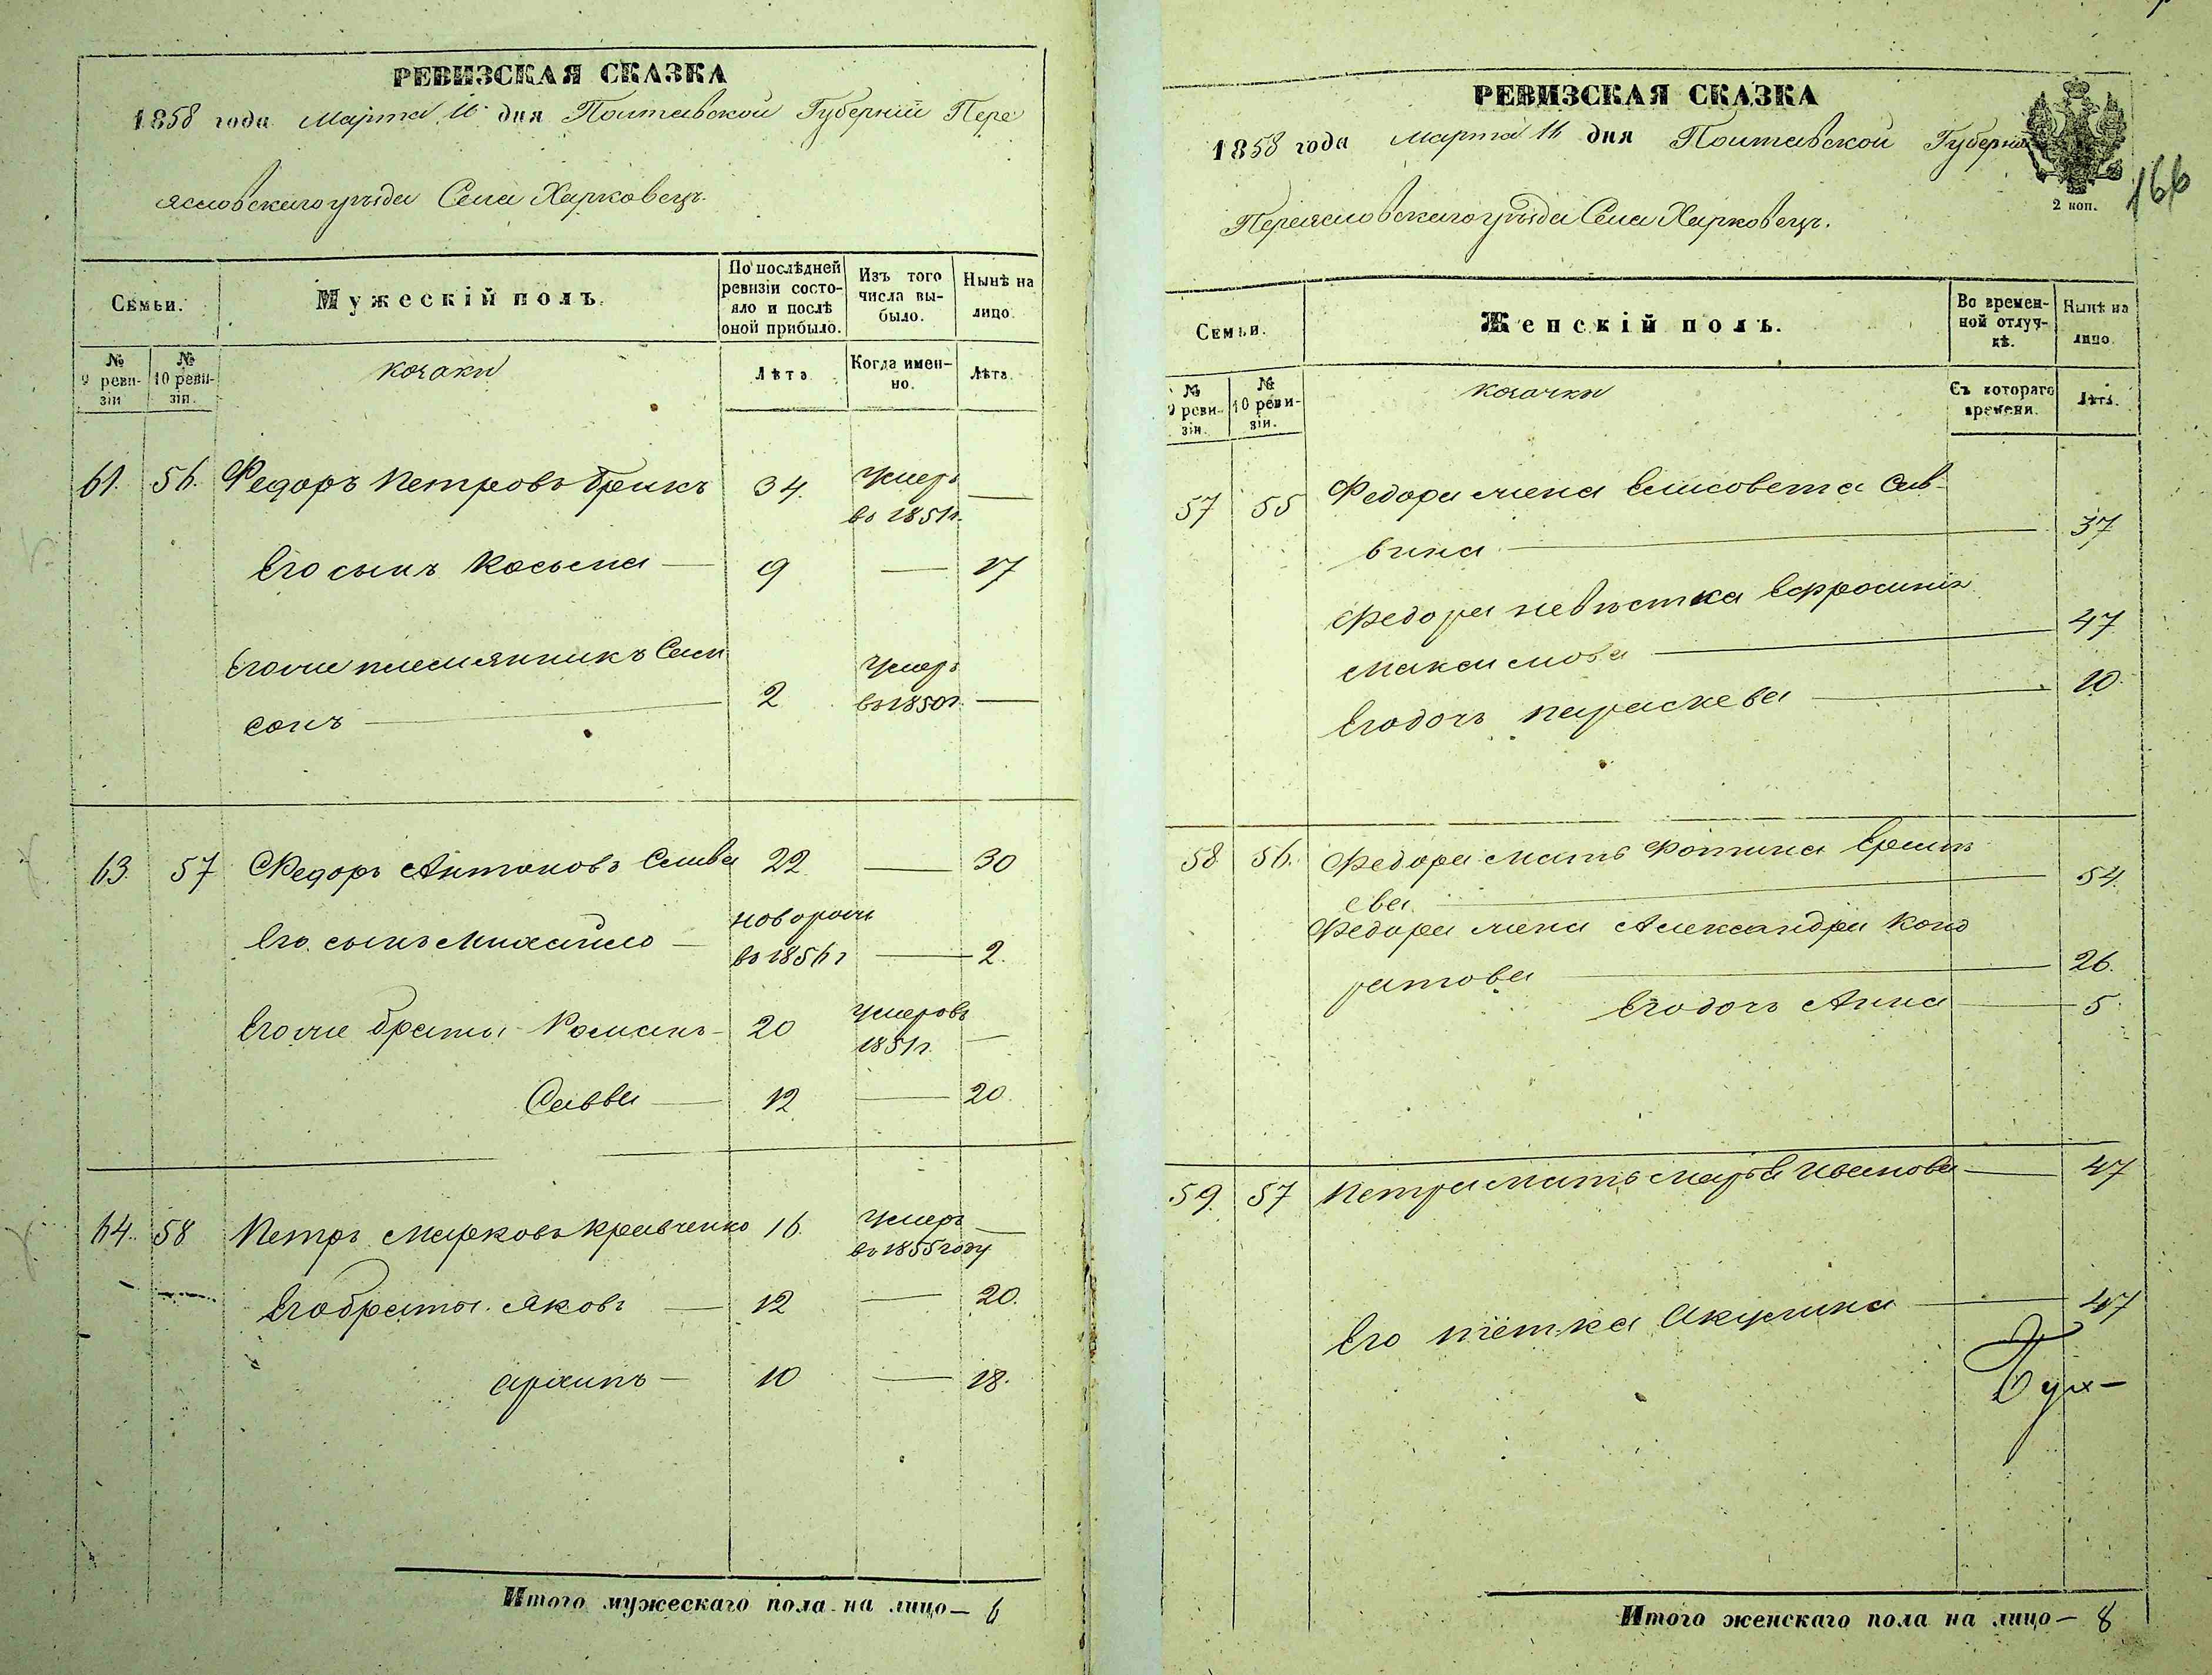 РЕВИЗСКАЯ СКАЗКА
1858 года Марта 11 дня Полтавской Губерніи Пере
яславскаго уѣзда Села Харковецъ.
Семьи.
Мужескій полъ.
По послѣдней ревизіи состо-
яло и послѣ оной прибыло.
Изъ того числа вы-
было.
Нынѣ на лицо.
№ 9 реви-
зіи
№ 10 реви-
зіи.
козаки
Лѣта
Когда имен-
но.
Лѣта.
61. 56. Федоръ Петровъ 34. умеръ —
въ 1851г.
Его сынъ Косьма — 9 — 17
Егоже племянникъ Сам
сонъ — 2 умеръ въ 1850г. —
63. 57 Федоръ Антоновъ Слива 22 — 30
Его сынъ Михайло — новорож
въ 1856г — 2.
Егоже братья Романъ — 20 умеръ въ
1851г. —
Савва — 12 — 20.
64. 58 Петръ Марковъ Кравченко 16. умеръ —
въ 1855 году
Его братья Яковъ — 12 — 20.
Архипъ — 10 — 18.
Итого мужескаго пола на лицо — 6
РЕВИЗСКАЯ СКАЗКА
1858 года марта 11 дня Полтавской Губерніи
2 коп.
166
Переяславскаго уѣзда Села Харковецъ.
Семьи.
Женскій полъ.
Во времен-
ной отлуч-
кѣ.
Нынѣ на
лицо.
№ 9 реви-
зіи.
№ 10 реви-
зіи.
козачки
Съ котораго
времени.
Лѣта.
57 55 Федора жена Елисовета Сав-
вина — 37
Федора невѣстка Ефросинія
Максимова — 47
Его дочь Параскева — 10
58 56. Федора мать Фотина
ева — 54.
Федора жена Александра Конд
ратова — 26.
Его дочь Анна — 5
59. 57 Петра мать Марья Иванова — 47
Его тётка Акулина — 47
Итого женскаго пола на лицо — 8